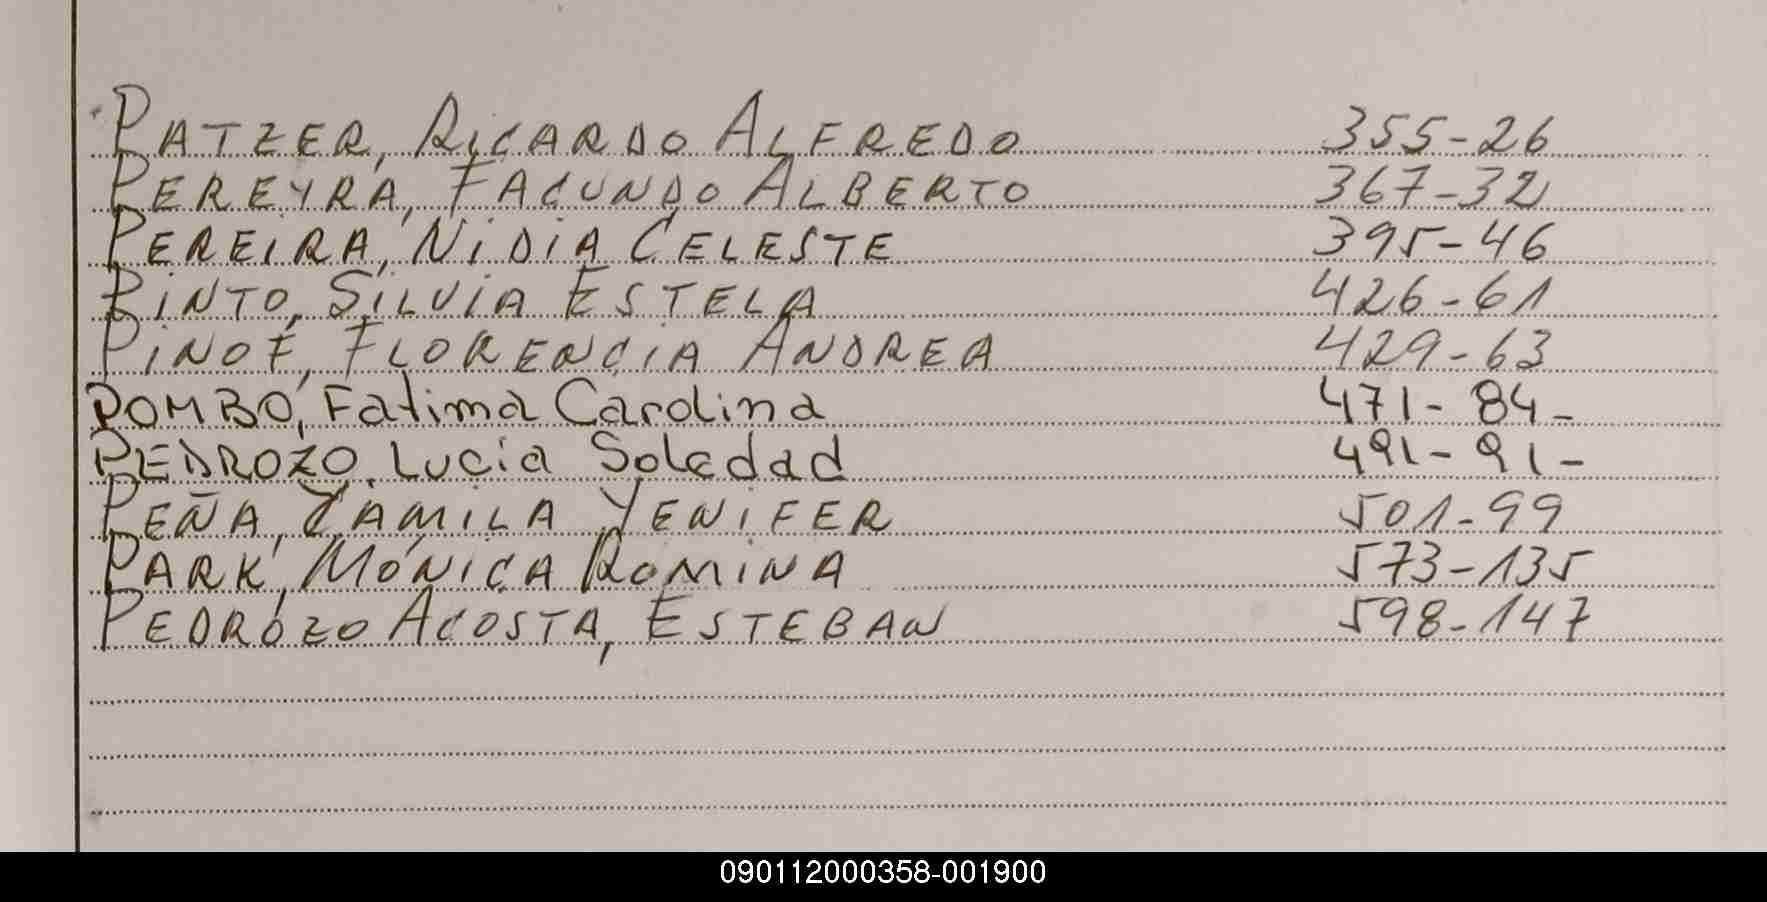 PATZER, RICARDO ALFREDO 355-26
PEREYRA, FACUNDO ALBERTO 367-32
PEREIRA, NIDIA CELESTE 395-46
PINTO, SILVIA ESTELA 426-61
PINOE, FLORENCIA ANDREA 429-63
POMBO, Fatima Carolina 471-84-
PEDROZO, Lucia Soledad 491-91-
PEÑA, YAMILA YENIFER 501-99
PARK, MÓNICA ROMINA 573-135
PEDROZO ACOSTA, ESTEBAN 598-147
090112000358-001900